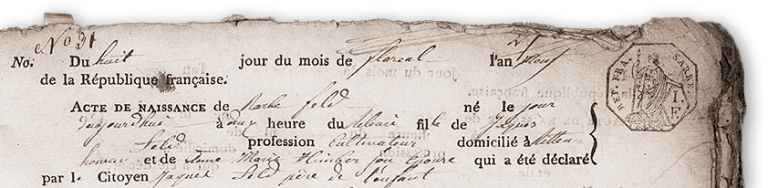 No. 31
No. Du huit jour du mois de floreal l'an neuf
de la République française.
ACTE DE NAISSANCE de feld né le jour
d'aujourd'hui à heure du fils de Jaques
feld profession Cultivateur domicilié à
et de Marie son Epouse qui a été déclaré
par le Citoyen Jaques feld père de l'enfant
RÉP. FRA. SARRE.